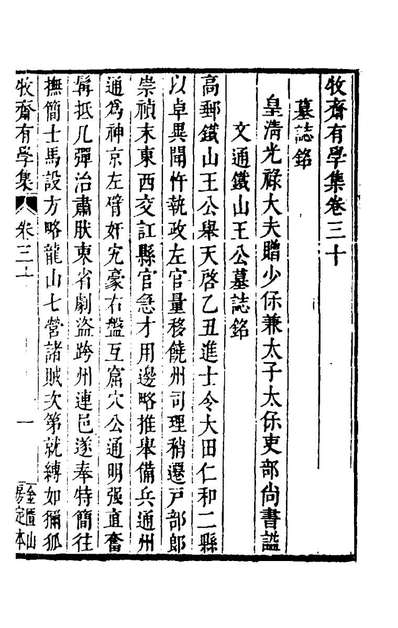 牧齋有學集卷三十
墓誌銘
皇淸光祿大夫贈少保兼太子太保吏部尙書謚
文通鐵山王公墓誌銘
高郵鐵山王公舉天啓乙丑進士令大田仁和二縣
以卓異聞忤執政左官量移饒州司理稍遷戶部郎
崇禎末東西交訌縣官急才用邊略推舉備兵通州
通爲神京左臂奸宄豪右盤互窟穴公通明强直奮
髯抵几彈治肅狀東省劇盜跨州連邑遂奉特簡往
撫簡士馬設方略龍山七營諸賊次第就縛如獮狐
牧齋有學集 卷三十 一 金匱山房定本